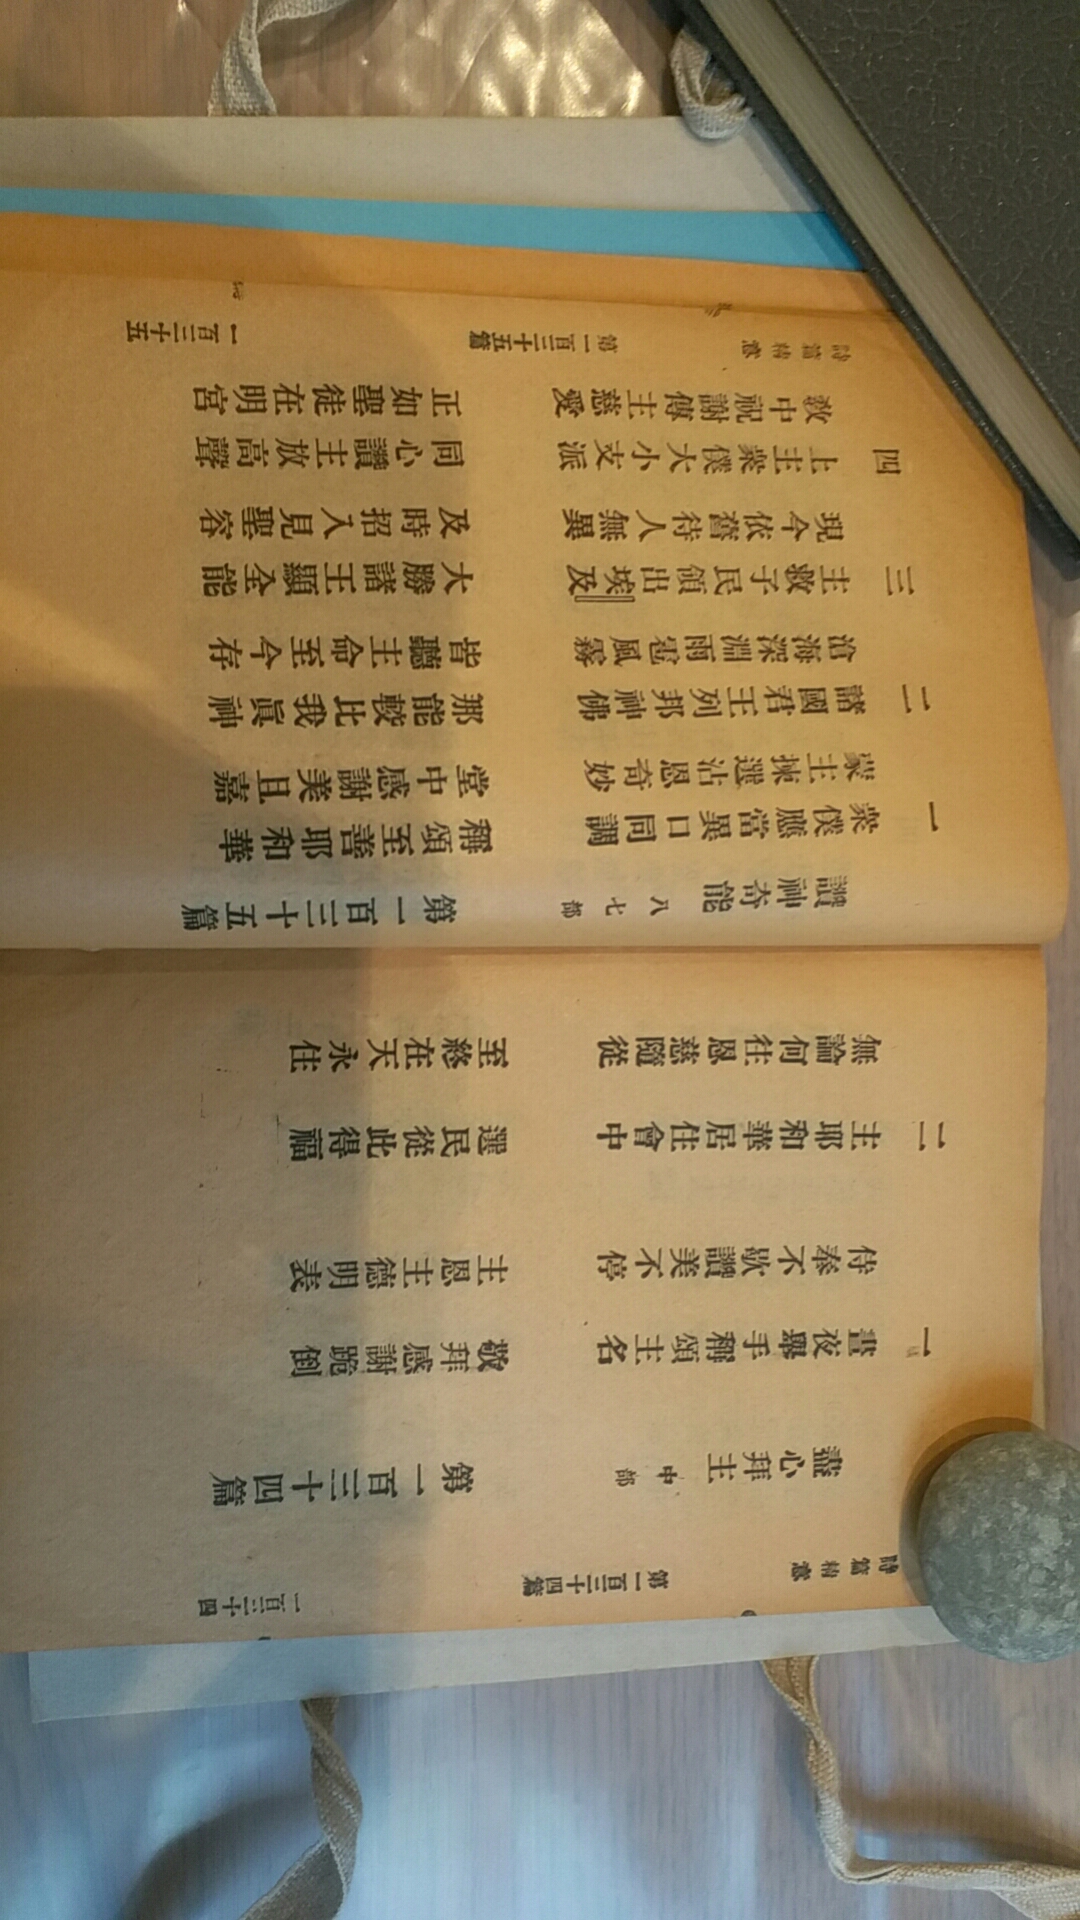 詩篇精意 第一百三十四篇 一百三十四
盡心拜主 中部 第一百三十四篇
一 晝夜舉手稱頌主名 敬拜感謝跪倒
侍奉不歇讚美不停 主恩主德明表
二 主耶和華居住會中 選民從此得福
無論何往恩慈隨從 至終在天永住
讚神奇能 八七部 第一百三十五篇
一 衆僕應當異口同調 稱頌至善耶和華
蒙主揀選沾恩奇妙 堂中感謝美且嘉
二 諸國君王列邦神佛 那能較比我眞神
滄海深淵雨雹風霧 皆聽主命至今存
三 主救子民領出埃及 大勝諸王顯全能
現今依舊待人無異 及時招入見聖容
四 上主衆僕大小支派 同心讚主放高聲
敎中祝謝傳主慈愛 正如聖徒在明宮
詩篇精意 第一百三十五篇 一百三十五